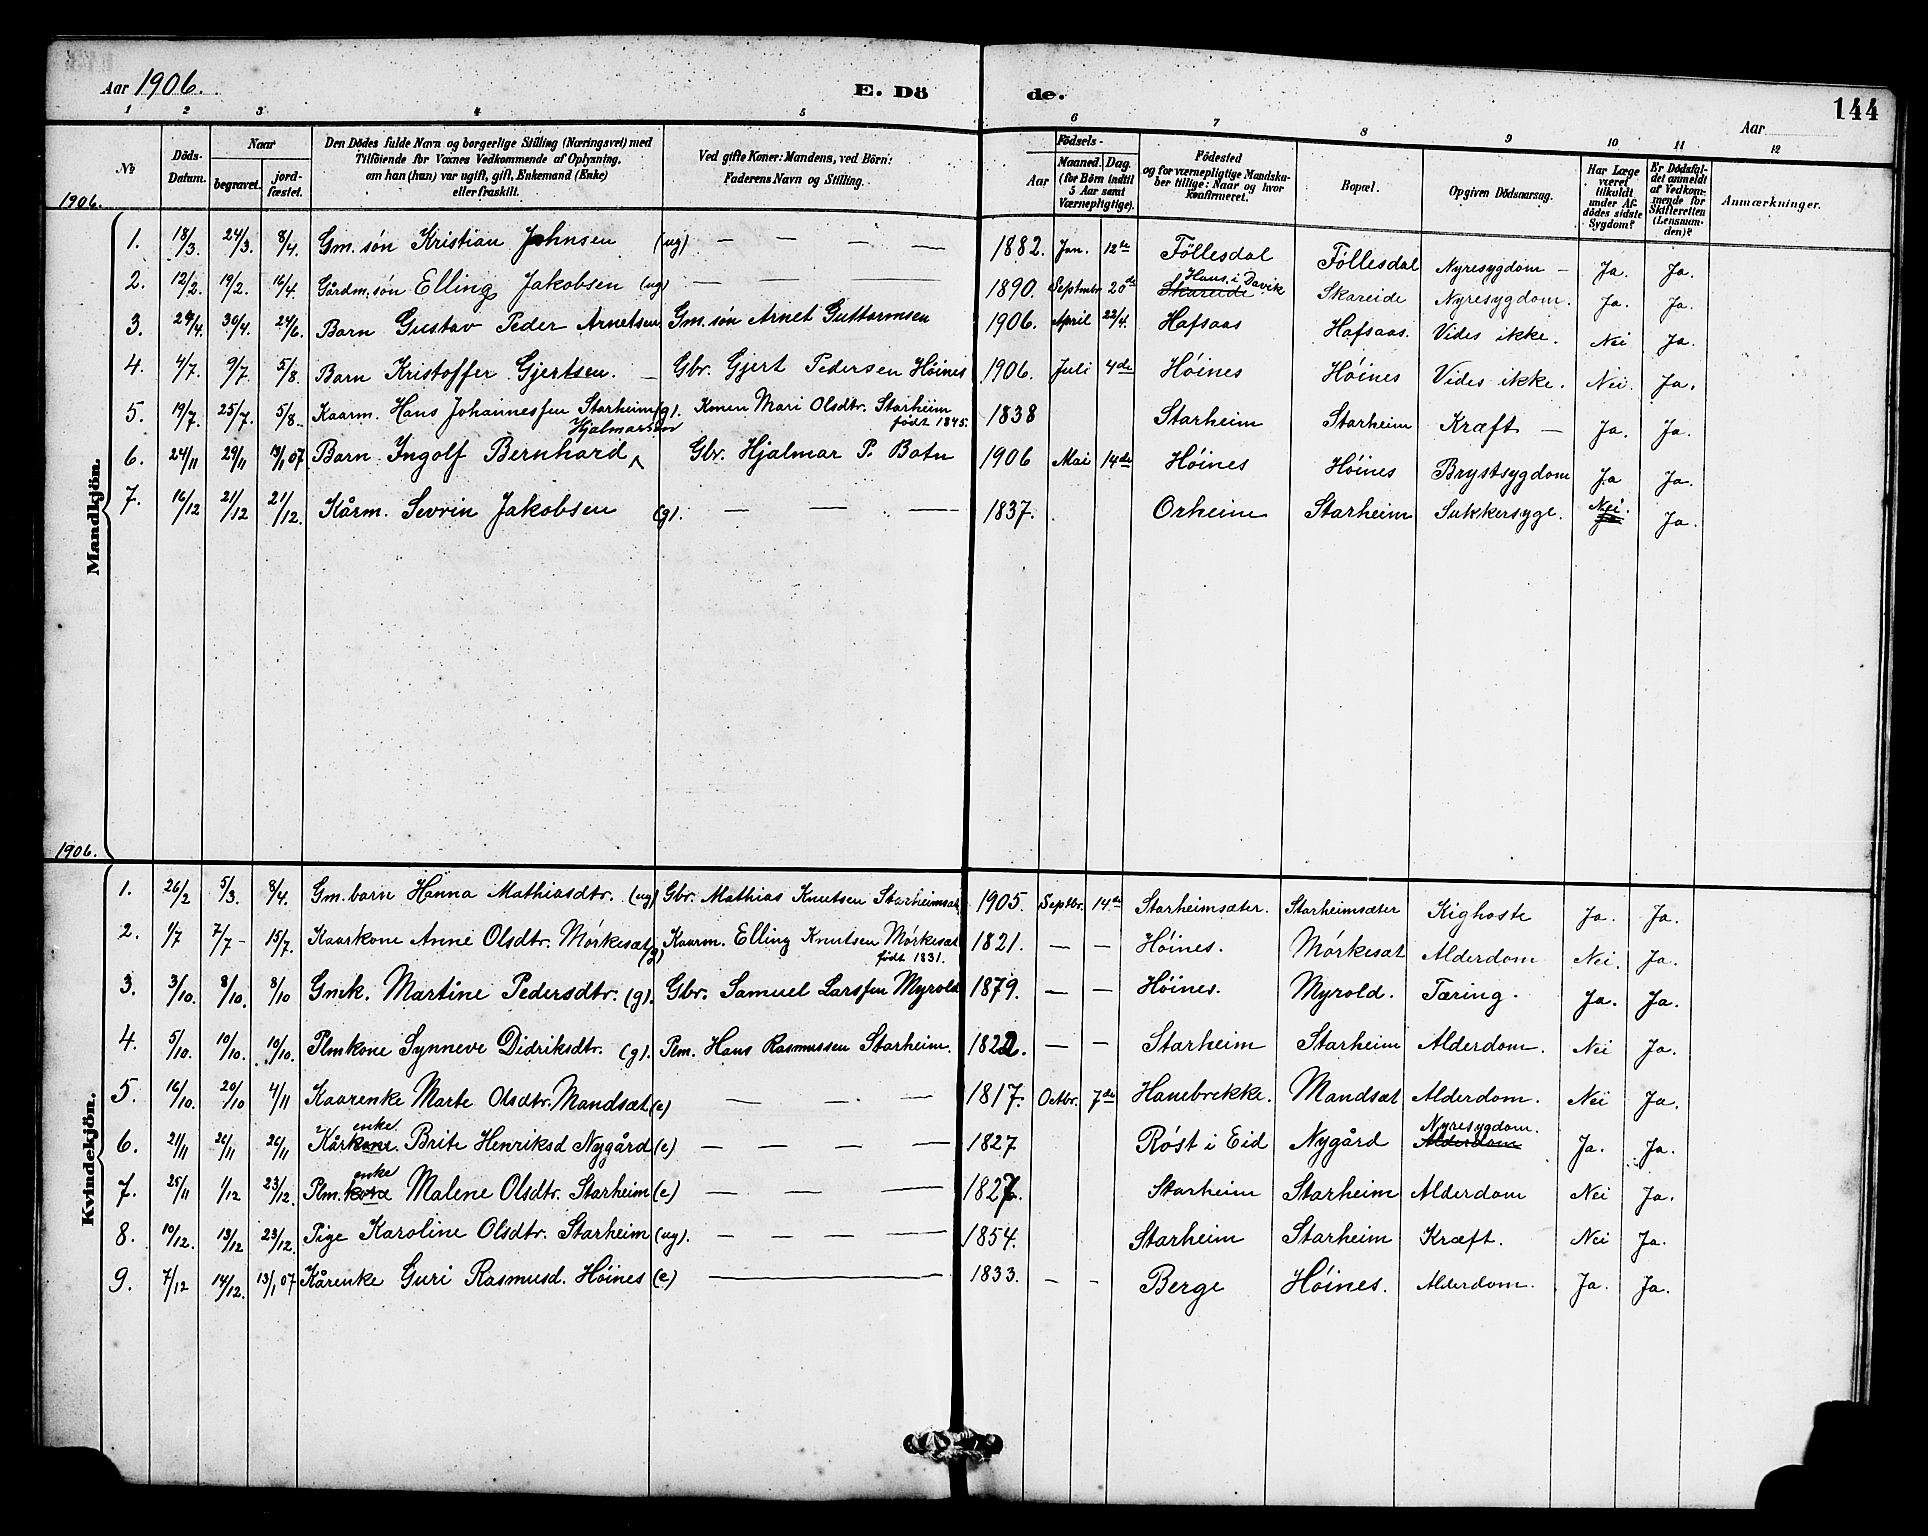 Aar 1906.
E. Dö de.
144
Aar
1 2 3 4 5 6 7 8 9 10 11 12
No
Döds-Datum.
Naar
begravet.
jord-fæstet.
Den Dödes fulde Navn og borgerlige Stilling (Næringsvei) med
Tilföiende for Voxnes Vedkommende af Oplysning,
om han (hun) var ugift, gift, Enkemand (Enke)
eller fraskilt.
Ved gifte Koner: Mandens, ved Börn:
Faderens Navn og Stilling.
Födsels-
Aar
Maaned. Dag.
(for Börn indtil
5 Aar samt
Værnepligtige).
Födested
og for værnepligtige Mandska-
ber tillige: Naar og hvor
konfirmeret.
Bopæl.
Opgiven Dödsaarsag.
Har Læge
været
tilkaldt
under Af-
dödes sidste
Sygdom?
Er Dödsfal-
det anmeldt
af Vedkom-
mende for
Skifteretten
(Lensman-
den)?
Anmærkninger.
1906.
Mandkjön.
1. 18/3. 24/3. 8/4. Gm. søn Kristian Johnsen (ug) — — — — 1882. Jan. 12te Föllesdal Föllesdal Nyresygdom — Ja. Ja.
2. 12/2. 19/2. 16/4. Gårdm. søn Elling Jakobsen (ug) — — — 1890. Septmbr 20de Skareide Hans i Davik Skareide Nyresygdom. Ja. Ja.
3. 24/4. 30/4. 24/6. Barn Gustav Peder Arnetsen Gm. søn Arnet Guttormsen 1906. April 22/4. Hafsaas Hafsaas. Vides ikke. Nei Ja.
4. 4/7. 9/7. 5/8. Barn Kristoffer Gjertsen. — Gbr. Gjert Pedersen Höines 1906. Juli 4de Höines Höines Vides ikke. Nei. Ja.
5. 19/7. 25/7. 5/8. Kaarm. Hans Johannessen Starheim (g). Konen Mari Olsdtr. Starheim født 1845. 1838 Starheim Starheim Kræft — Ja. Ja.
6. 24/11 29/11 13/1 07 Barn Ingolf Bernhard Hjalmarsen Gbr. Hjalmar P. Botn 1906 Mai 14de Höines Höines Brystsygdom Ja Ja.
7. 16/12 21/12 21/12. Kårm. Sevrin Jakobsen (g). — — — 1837. Orheim Starheim Sukkersyge. Nei. Ja Ja.
1906.
Kvindekjön.
1. 26/2 5/3. 8/4. Gm. barn Hanna Mathiasdtr. (ug) Gbr. Mathias Knutsen Starheimsæt. 1905. Septbr. 14de Starheimsæter. Starheimsæter Kighoste Ja. Ja.
2. 1/7 7/7 - 15/7. Kaarkone Anne Olsdtr. Mörkesæt (g) Kaarm. Elling Knutsen Mörkesæt født 1831. 1821. — — Höines. Mörkesæt Alderdom Nei. Ja.
3. 3/10. 8/10. 8/10 Gmk. Martine Pedersdtr. (g). Gbr. Samuel Larssen Myrold 1879. — — Höines. Myrold. Tæring. Ja. Ja.
4. 5/10. 10/10. 10/10. Plmkone Synneve Didriksdtr. (g). Plm. Hans Rasmussen Starheim. 1822. — — Starheim Starheim Alderdom. Nei Ja.
5. 16/10. 20/10 4/11 Kaarenke Marte Olsdtr. Mandsæt (e) — — — 1817. Octbr. 7de Hanebrekke. Mandsæt Alderdom. Nei Ja.
6. 21/11 26/11 26/11 Kårkone. enke Brite Henriksd Nygård (e) — — — — 1827 Röst i Eid Nygård Alderdom Nyresygdom. Ja. Ja.
7. 25/11 1/12 23/12. Plm. kone enke Malene Olsdtr. Starheim (e) — — — — 1827. Starheim Starheim Alderdom Nei Ja.
8. 10/12. 13/12 23/12. Pige Karoline Olsdtr. Starheim (ug). — — — — 1854. Starheim Starheim Kræft. Nei Ja.
9. 7/12 14/12. 13/1 07 Kårenke Guri Rasmusd. Höines (e) — 1833. — — Berge Höines. Alderdom. Ja. Ja.